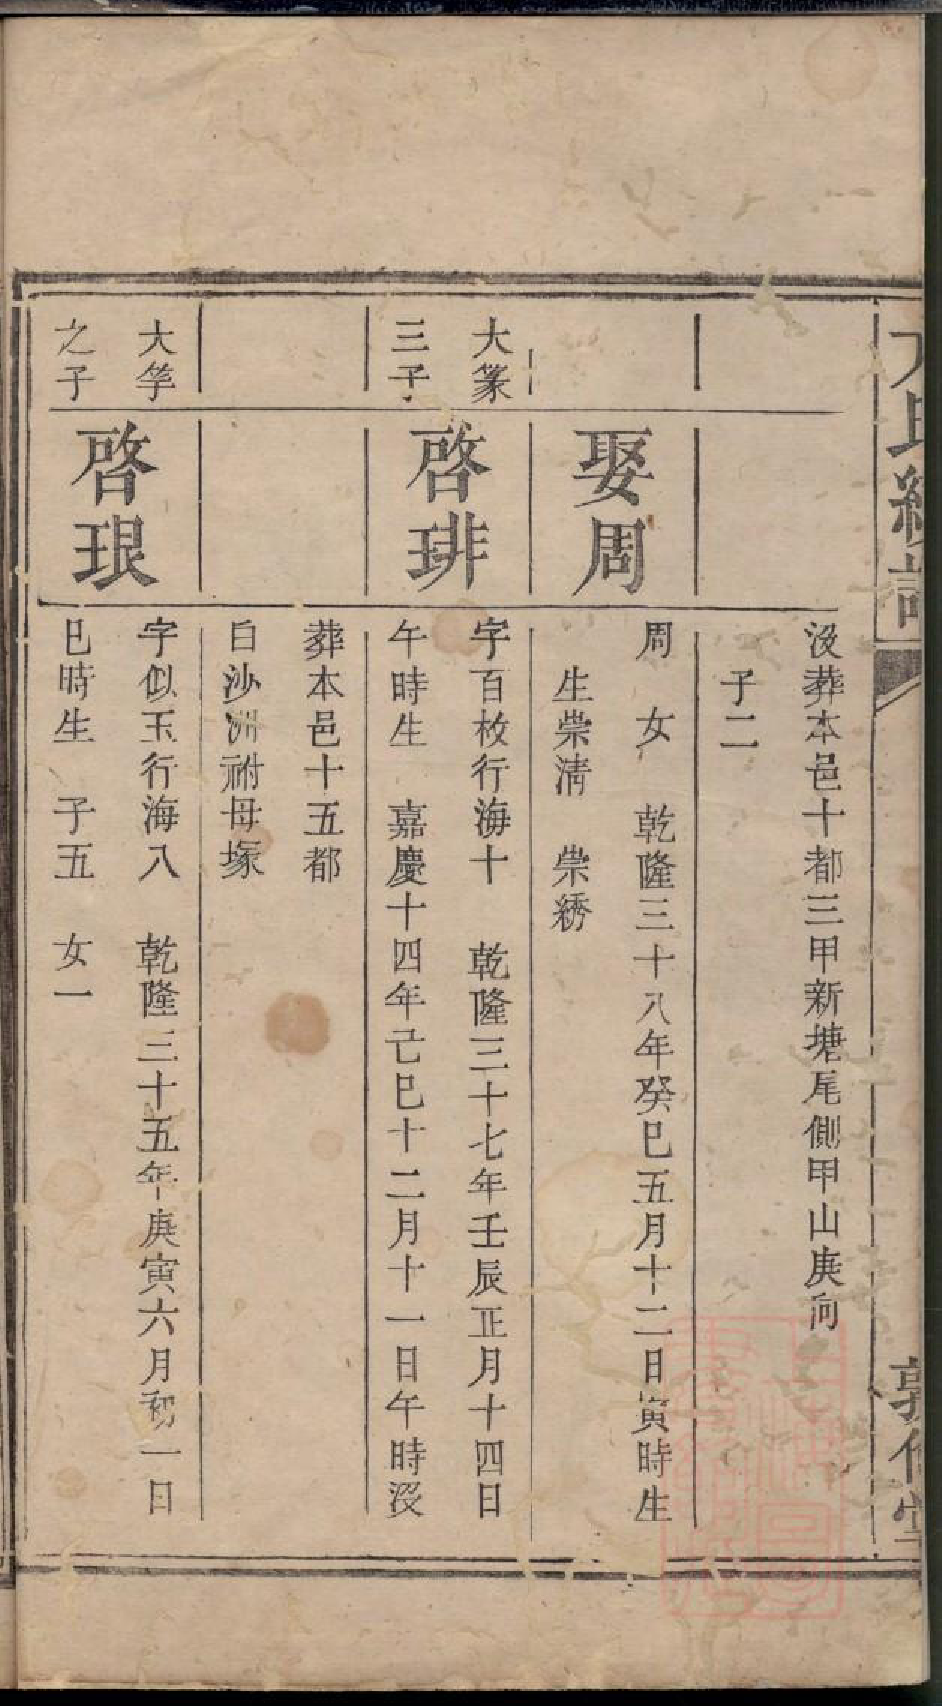 沒葬本邑十都三甲新塘尾側甲山庚向
子二
娶周
周 女 乾隆三十八年癸巳五月十二日寅時生
生崇清 崇綉
大篆
三子
啓琲
字百枚行海十 乾隆三十七年壬辰正月十四日
午時生 嘉慶十四年己巳十二月十一日午時沒
葬本邑十五都
白沙洲祔母塚
大竽
之子
啓珢
字似玉行海八 乾隆三十五年庚寅六月初一日
巳時生 子五 女一